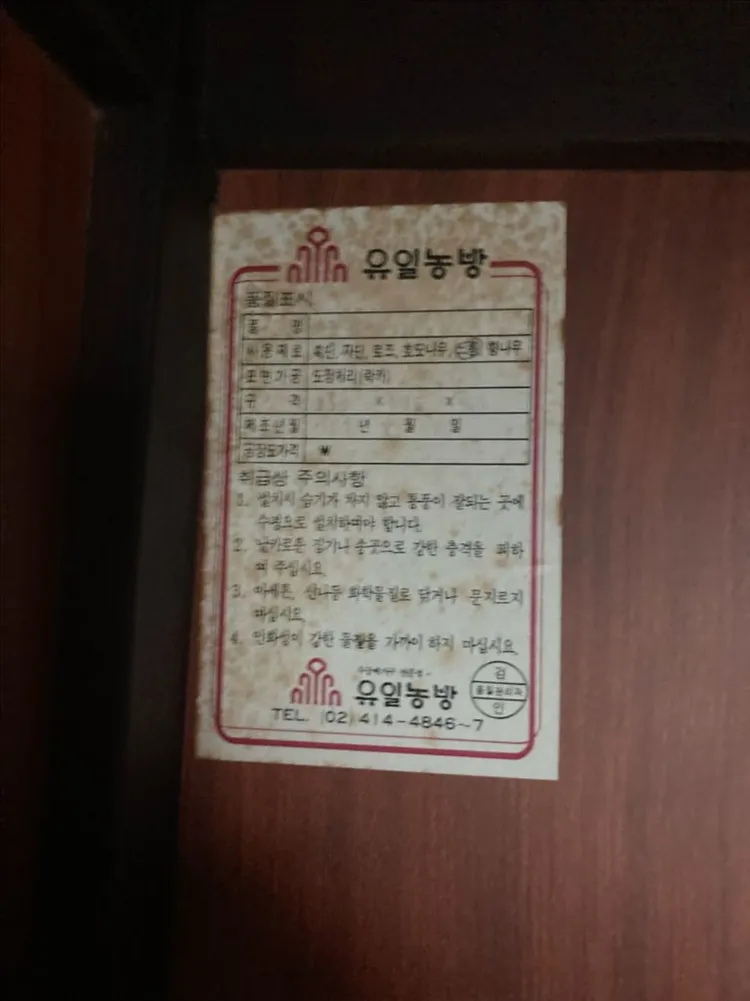 유일농방
품질표시
품 명
사용재료 흑단, 자단, 로즈, 호도나무, 향나무
표면가공 도장처리(락카)
규 격 x x
제조년월 년 월 일
공장도가격 ₩
취급상 주의사항
1. 설치시 습기가 차지 않고 통풍이 잘되는 곳에
수평으로 설치하여야 합니다.
2. 날카로운 집기나 송곳으로 강한 충격을 피하
며 주십시요.
3. 아세톤, 신나등 화학물질로 닦거나 문지르지
마십시요.
4. 인화성이 강한 물질을 가까이 하지 마십시요.
유일농방
TEL. (02) 414-4846~7
검
품질관리과
인